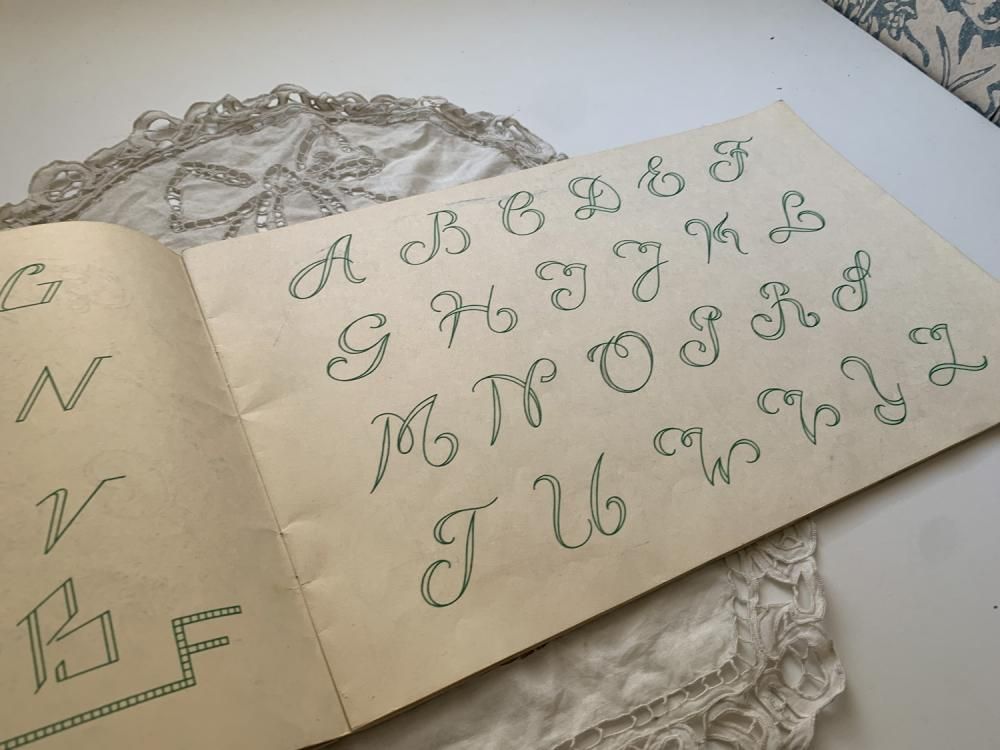 G
N
V
B F
A B C D E F
G H I J K L
M N O P R S
T U W V Y Z